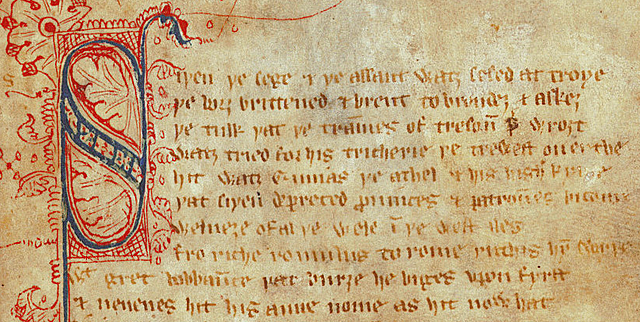 Siþen þe sege & þe assaut watz sesed at troye
þe borȝ brittened & brent to brondeȝ & askez
þe tulk þat þe tra̅mes of tresou̅ þ̷ wroȝt
watz tried for his tricherie þe trewest on erthe
hit watz Ennias þe athel & his highe kynde
þat siþen depreced prouinces & patrou̅es bicome
welneȝe of al þe wele i̅ þe west iles
fro riche romulus to rome ricchis hy̅ swyþe
gret bobbau̅ce þat burȝe he biges vpon fyrst
& neuenes hit his aune nome as hit now hat